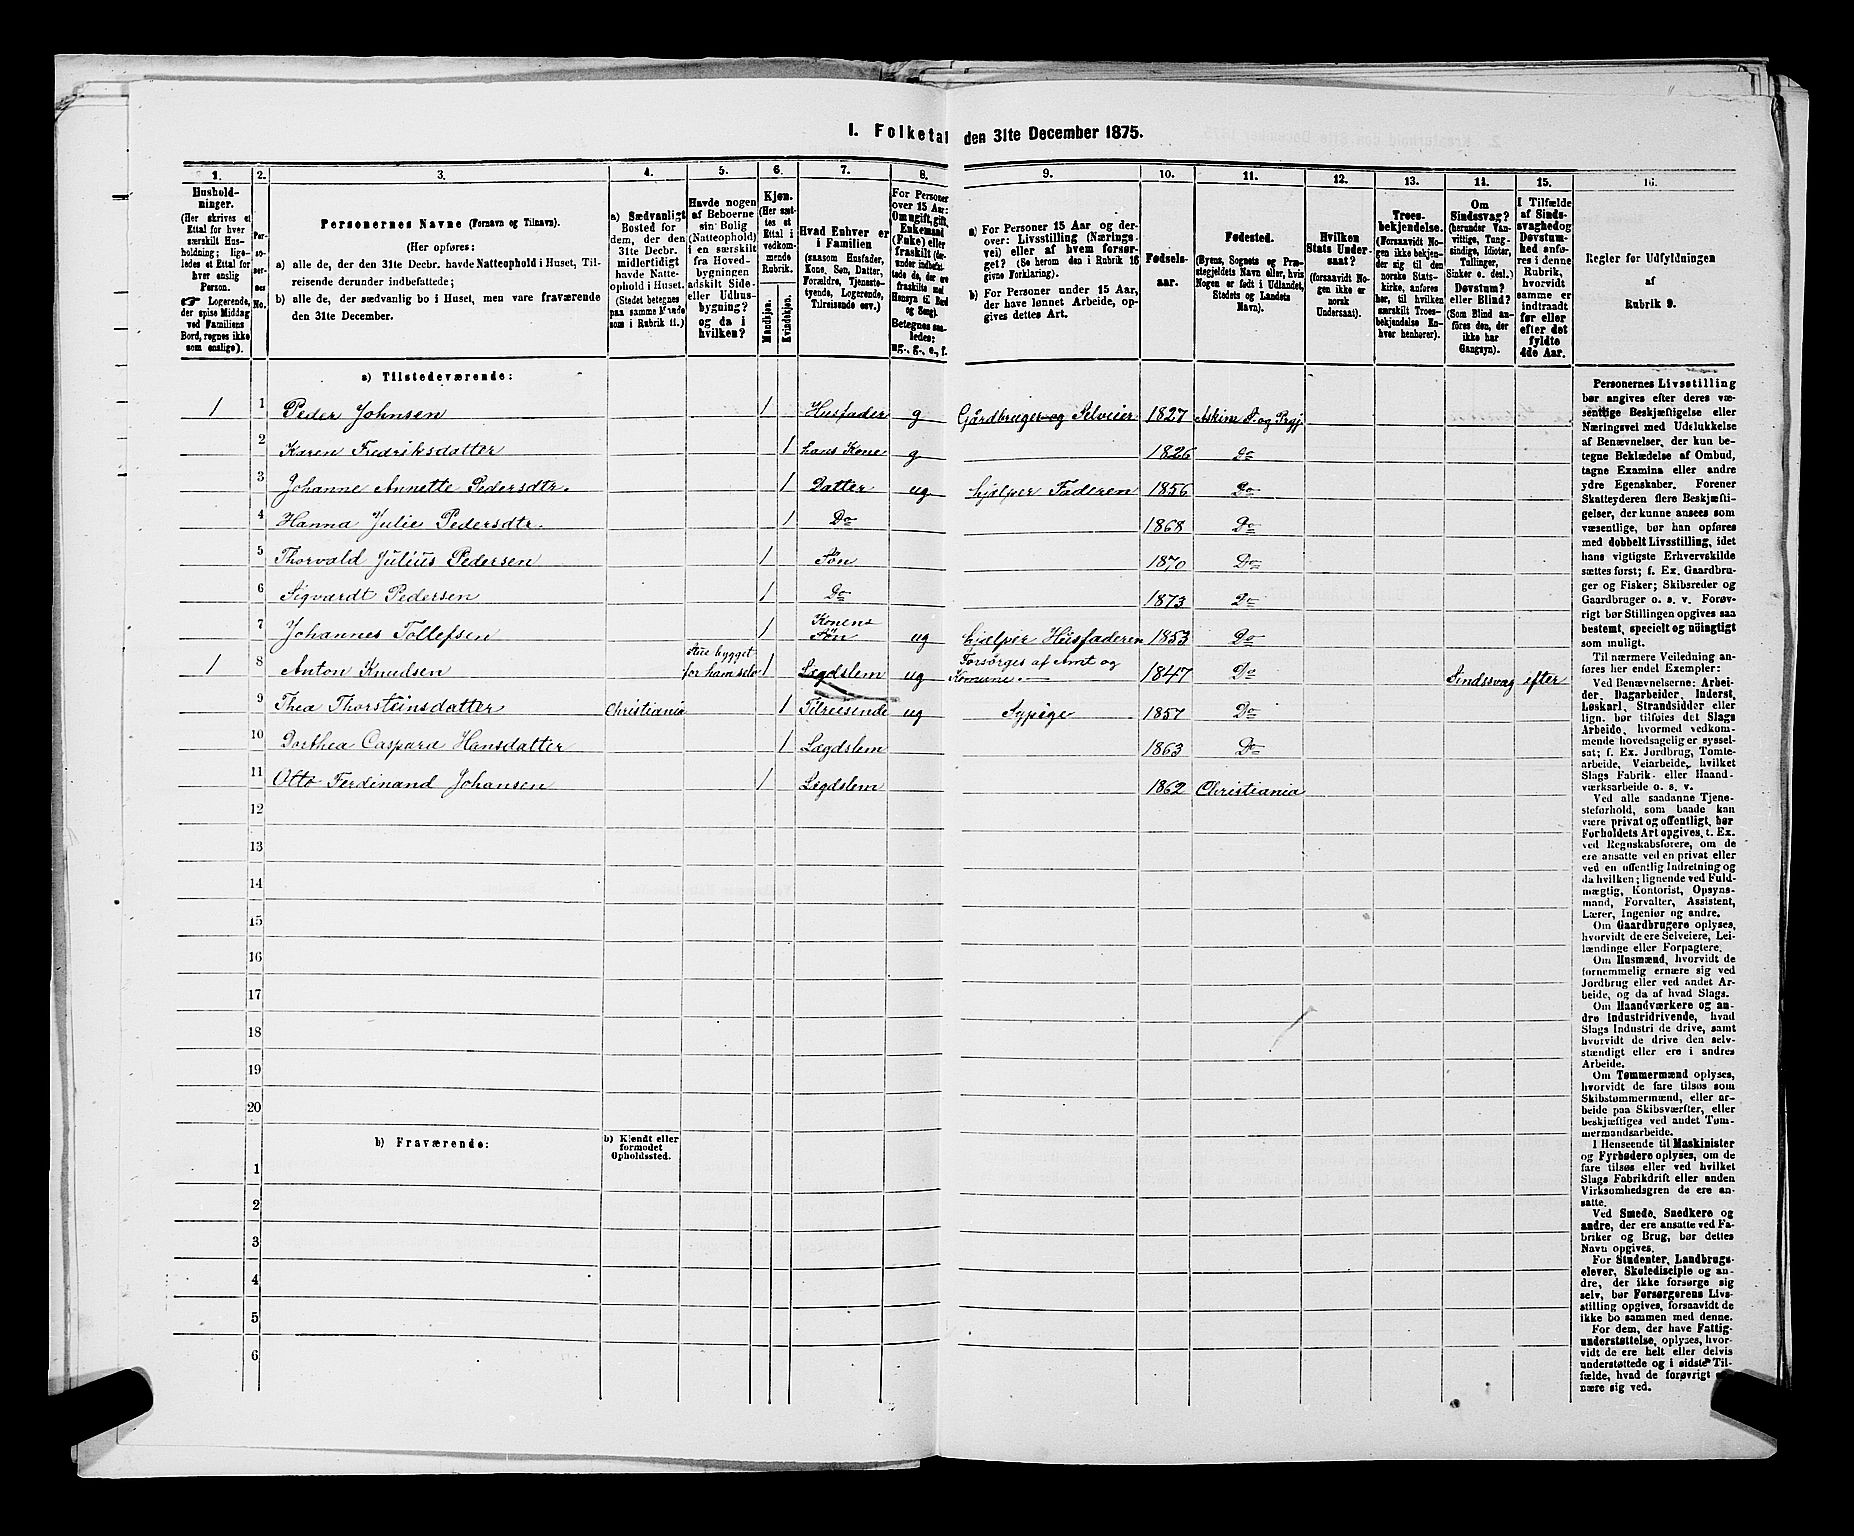 I. Folketal den 31te December 1875.
1. 2. 3. 4. 5. 6. 7. 8. 9. 10. 11. 12. 13. 14. 15. 16.
Hushold-
ninger.
(Her skrives et
Ettal for hver
særskilt Hus-
holdning; lige-
ledes et Ettal for
hver enslig
Person.
☞ Logerende,
der spise Middag
ved Familiens
Bord, regnes ikke
som enslige).
Per-
so-
ner-
nes
No.
Personernes Navne (Fornavn og Tilnavn).
(Her opføres:
a) alle de, der den 31te Decbr. havde Natteophold i Huset, Til-
reisende derunder indbefattede;
b) alle de, der sædvanlig bo i Huset, men vare fraværende
den 31te December.
a) Sædvanligt
Bosted for
dem, der den
31te Decbr.
midlertidigt
havde Natte-
ophold i Huset.
(Stedet betegnes
paa samme Maade
som i Rubrik 11.)
Havde nogen
af Beboerne
sin Bolig
(Natteophold)
i en særskilt
fra Hoved-
bygningen
adskilt Side-
eller Udhus-
bygning?
og da i
hvilken?
Kjøn.
(Her sæt-
tes et
Ettal i
vedkom-
mende
Rubrik.
Mandkjøn.
Kvindekjøn.
Hvad Enhver er
i Familien
(saasom Husfader,
Kone, Søn, Datter,
Forældre, Tjeneste-
tyende, Logerende,
Tilreisende osv.)
For Personer
over 15 Aar:
Om ugift, gift,
Enkemand
(Enke) eller
fraskilt
Betegnes saa-
ledes:
ug., g., e., f.
a) For Personer 15 Aar og der-
over: Livsstilling (Nærings-
vei) eller af hvem forsør-
get? (Se herom den i Rubrik 16
givne Forklaring).
b) For Personer under 15 Aar,
der have lønnet Arbeide, op-
gives dettes Art.
Fødsels-
aar.
Fødested.
(Byens, Sognets og Præ-
stegjeldets Navn eller, hvis
Nogen er født i Udlandet,
Stedets og Landets
Navn).
Hvilken
Stats Under-
saat?
(forsaavidt No-
gen ikke er
norsk
Undersaat).
Troes-
bekjendelse.
(Forsaavidt No-
gen ikke bekjen-
der sig til den
norske Stats-
kirke, anføres
her, til hvilken
særskilt Troes-
bekjendelse En-
hver henhører).
Om
Sindssvag?
(herunder Van-
vittige, Tung-
sindige, Idioter,
Tullinger,
Sinker o. desl.)
Døvstum?
eller Blind?
(Som Blind an-
føres den, der
ikke har
Gangsyn).
I Tilfælde
af Sinds-
svaghed og
Døvstum-
het anfø-
res i denne
Rubrik,
hvorvidt
samme er
indtraadt
før eller
efter det
fyldte
4de Aar.
Regler for Udfyldningen
af
Rubrik 9.
a) Tilstedeværende:
1 1 Peder Johnsen 1 Husfader g Gårdbruger og Selveier 1827 Askim S. og Prgj.
2 Karen Fredriksdatter 1 hans Kone g 1826 Do
3 Johanne Annette Pedersdtr. 1 Datter ug hjælper Faderen 1856 Do
4 Hanna Julie Pedersdtr. 1 Do 1868 Do
5 Thorvald Julius Pedersen 1 Søn 1870 Do
6 Sigvardt Pedersen 1 Do 1873 Do
7 Johannes Tollefsen 1 Konens Søn ug hjælper Husfaderen 1853 Do
1 8 Anton Knudsen Stue bygget for ham selv 1 Lægdslem ug Forsørges af Amt og Komune 1847 Do Sindssvag efter
9 Thea Thorsteinsdatter Christiania 1 Tilreisende ug Sypige 1857 Do
10 Dorthea Caspara Hansdatter 1 Lægdslem 1863 Do
11 Otto Ferdinand Johansen 1 Lægdslem 1862 Christiania
12
13
14
15
16
17
18
19
20
b) Fraværende:
b) Kjendt eller
formodet
Opholdssted.
1
2
3
4
5
6
Personernes Livsstilling
bør angives efter deres væ-
sentlige Beskjæftigelse eller
Næringsvei med Udelukkelse
af Benævnelser, der kun be-
tegne Beklædelse af Ombud,
tagne Examina eller andre
ydre Egenskaber. Forener
Skatteyderen flere Beskjæfti-
gelser, der kunne ansees som
væsentlige, bør han opføres
med dobbelt Livsstilling, idet
hans vigtigste Erhvervskilde
sættes først; f. Ex. Gaardbru-
ger og Fisker; Skibsreder og
Gaardbruger o. s. v. Forøv-
rigt bør Stillingen opgives saa
bestemt, specielt og nöiagtigt
som muligt.
Til nærmere Veiledning an-
føres her endel Exempler:
Ved Benævnelserne: Arbei-
der, Dagarbeider, Inderst,
Løskarl, Strandsidder eller
lign. bør tilføies det Slags
Arbeide, hvormed vedkom-
mende hovedsagelig er syssel-
sat; f. Ex. Jordbrug, Tomte-
arbeide, Veiarbeide, hvilket
Slags Fabrik- eller Haand-
værksarbeide o. s. v.
Ved alle saadanne Tjene-
steforhold, som baade kan
være privat og offentligt, bør
Forholdets Art opgives, t. Ex.
ved Regnskabsførere, om de
ere ansatte ved en privat eller
ved en offentlig Indretning og
da hvilken; lignende ved Fuld-
mægtig, Kontorist, Opsyns-
mand, Forvalter, Assistent,
Lærer, Ingeniør og andre.
Om Gaardbrugere oplyses,
hvorvidt de ere Selveiere, Lei-
lændinge eller Forpagtere.
Om Husmænd, hvorvidt de
fornemmelig ernære sig ved
Jordbrug eller ved andet Ar-
beide, og da af hvad Slags.
Om Haandværkere og an-
dre Industridrivende, hvad
Slags Industri de drive, samt
hvorvidt de drive den selv-
stændigt eller ere i andres
Arbeide.
Om Tømmermænd oplyses,
hvorvidt de fare tilsøs som
Skibstømmermænd, eller ar-
beide paa Skibsværfter, eller
beskjæftiges ved andet Tøm-
mermandsarbeide.
I Henseende til Maskinister
og Fyrbødere oplyses, om de
fare tilsøs eller ved hvilket
Slags Fabrikdrift eller anden
Virksomhedsgren de ere an-
satte.
Ved Smede, Snedkere og
andre, der ere ansatte ved Fa-
briker og Brug, bør dettes
Navn opgives.
For Studenter, Landbrugs-
elever, Skoledisciple og an-
dre, der ikke forsørge sig
selv, bør Forsørgerens Livs-
stilling opgives, forsaavidt de
ikke bo sammen med denne.
For dem, der have Fattig-
understøttelse, oplyses, hvor-
vidt de ere helt eller delvis
understøttede og i sidste Til-
fælde, hvad de forøvrigt er-
nære sig ved.